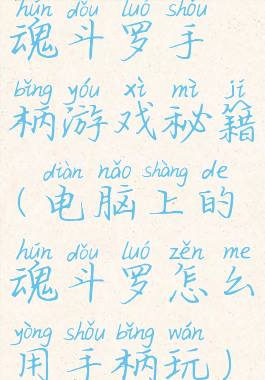 hún dǒu luó shǒu
魂斗罗手
bǐng yóu xì mì jí
柄游戏秘籍
diàn nǎo shàng de
(电脑上的
hún dǒu luó zěn me
魂斗罗怎么
yòng shǒu bǐng wán
用手柄玩)